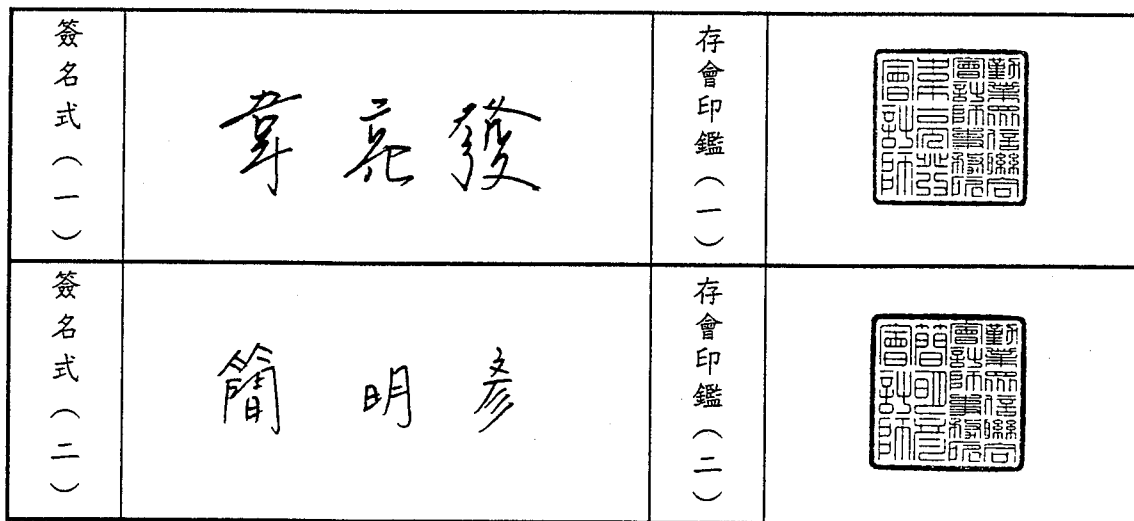 簽名式（一）
韋亮發
存會印鑑（一）
勤業眾信聯合
會計師事務所
韋亮發
會計師
簽名式（二）
簡明彥
存會印鑑（二）
勤業眾信聯合
會計師事務所
簡明彥
會計師